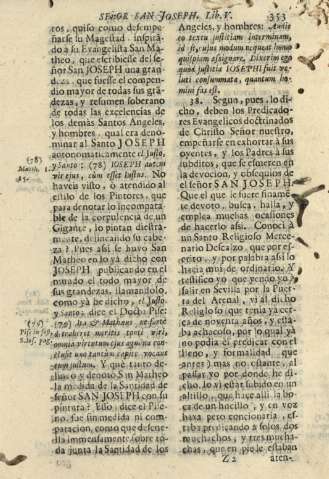 SEñOR SAN JOSEPH. Lib. V. 353
tos, quiso como desempe-
ñarse su Magestad inspira-
do a su Evangelista San Ma-
theo, que escribiesse del se-
ñor San JOSEPH una gran-
deza, que fuesse el compen-
dio mayor de todas sus grã-
dezas, y resumen soberano
de todas las excelencias de
los demás Santos Angeles,
y hombres, qual era deno-
minar al Santo JOSEPH
autonomaticamente el Justo,
y Santo: (78) IOSEPH autem
vir ejus, cùm esset Iustus. No
haveis visto, ò atendido al
estilo de los Pintores, que
para denotar lo incompata-
ble de la corpulencia de un
Gigante, lo pintan diestra-
mente, delineando su cabe-
za? Pues assi se huvo San
Matheo en lo yà dicho con
JOSEPH publicando en el
mundo el todo mayor de
sus grandezas, llamandolo,
como yà he dicho, el Justo,
y Santo; dice el Docto Pise:
(79) Ita S. Matthæus
omnia virtutum ejus agmina con-
clusit uno tantum eum vocans
Justum. Y que tanto de-
lineo y denotò S. Matheo
la medida de la Santidad de
señor SAN JOSEPH con su
pintura? Esso, dice el Pise-
no, fue sin medida ni com-
paracion, como que denota-
lla immensamente sobre to-
da junta la Santidad de los
(78)
Matth. 1.
(79)
Angeles, y hombres:
eo textu justitiam interminam,
id est, ujus modum nequeat homo
quispiam assignare, Dixerim ego
quod justitia IOSEPHI fuit ve-
luti consummata, quantum ho-
mini fas est.
38. Segun, pues, lo di-
cho, deben los Predicado-
res Evangelicos doctrinados
de Christo Señor nuestro,
empeñarse en exhortar à sus
oyentes, y los Padres à sus
subditos, que se esmeren en
la devocion, y obsequios de
el señor SAN JOSEPH.
Que el que le fuere finame-
te devoto, busca, halla, y
emplea muchas ocasiones
de hacerlo assi. Conocì à
un Santo Religioso Merce-
nario Descalzo, que por es-
crito, y por palabra assi lo
hacia mui de ordinario. Y
testifico yo que yendo yo à
salir en Sevilla por la Puer-
ta del Arenal, vi al dicho
Religioso que tenia yà cer-
ca de noventa años, y esta-
ba achacoso, por lo qual yà
no podia èl predicar con el
lleno, y formalidad que
antes) mas no estante, al
passar yo por donde he di-
cho, lo vi estar subido en un
altillo, que hace alli la bo-
ca de un hocillo, y en voz
baxa, pero concionaria, es-
taba predicando à solos dos
muchachos, y tres mucha-
chas, que en pie le estaban
Z 2 aten-